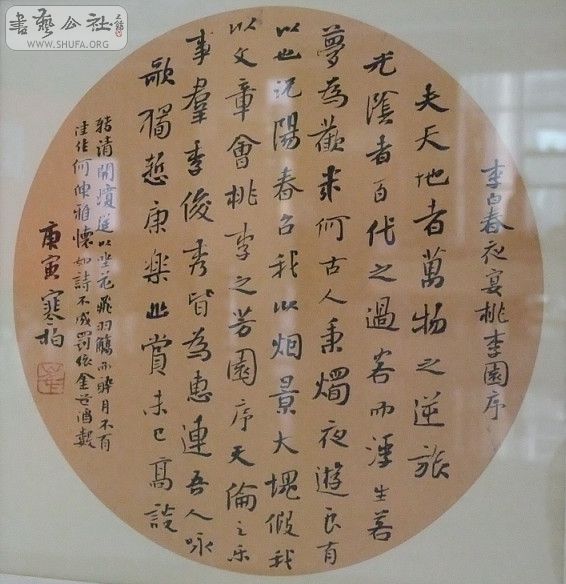 書藝公社
WWW.SHUFA.ORG
李白春夜宴桃李園序
夫天地者萬物之逆旅
光陰者百代之過客而浮生若
夢為歡幾何古人秉燭夜遊良有
以也況陽春召我以烟景大塊假我
以文章會桃李之芳園序天倫之樂
事羣季俊秀皆為惠連吾人咏
歌獨慙康樂幽賞未已高談
轉清開瓊筵以坐花飛羽觴而醉月不有
佳作何伸雅懷如詩不成罰依金谷酒數
庚寅寒柏